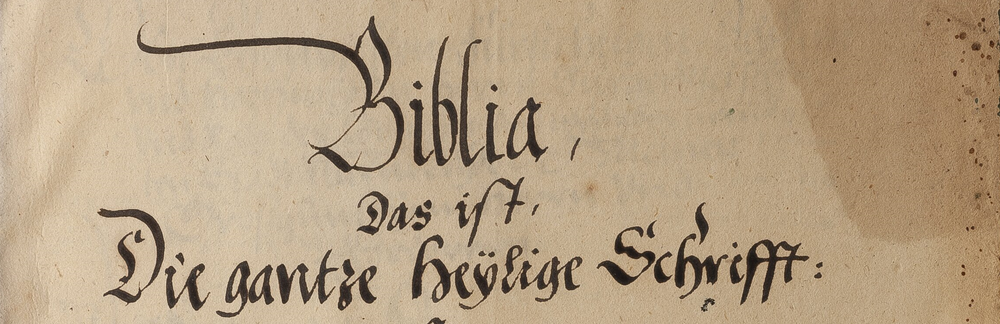 Biblia,
Das ist,
Die gantze Heÿlige Schrifft: